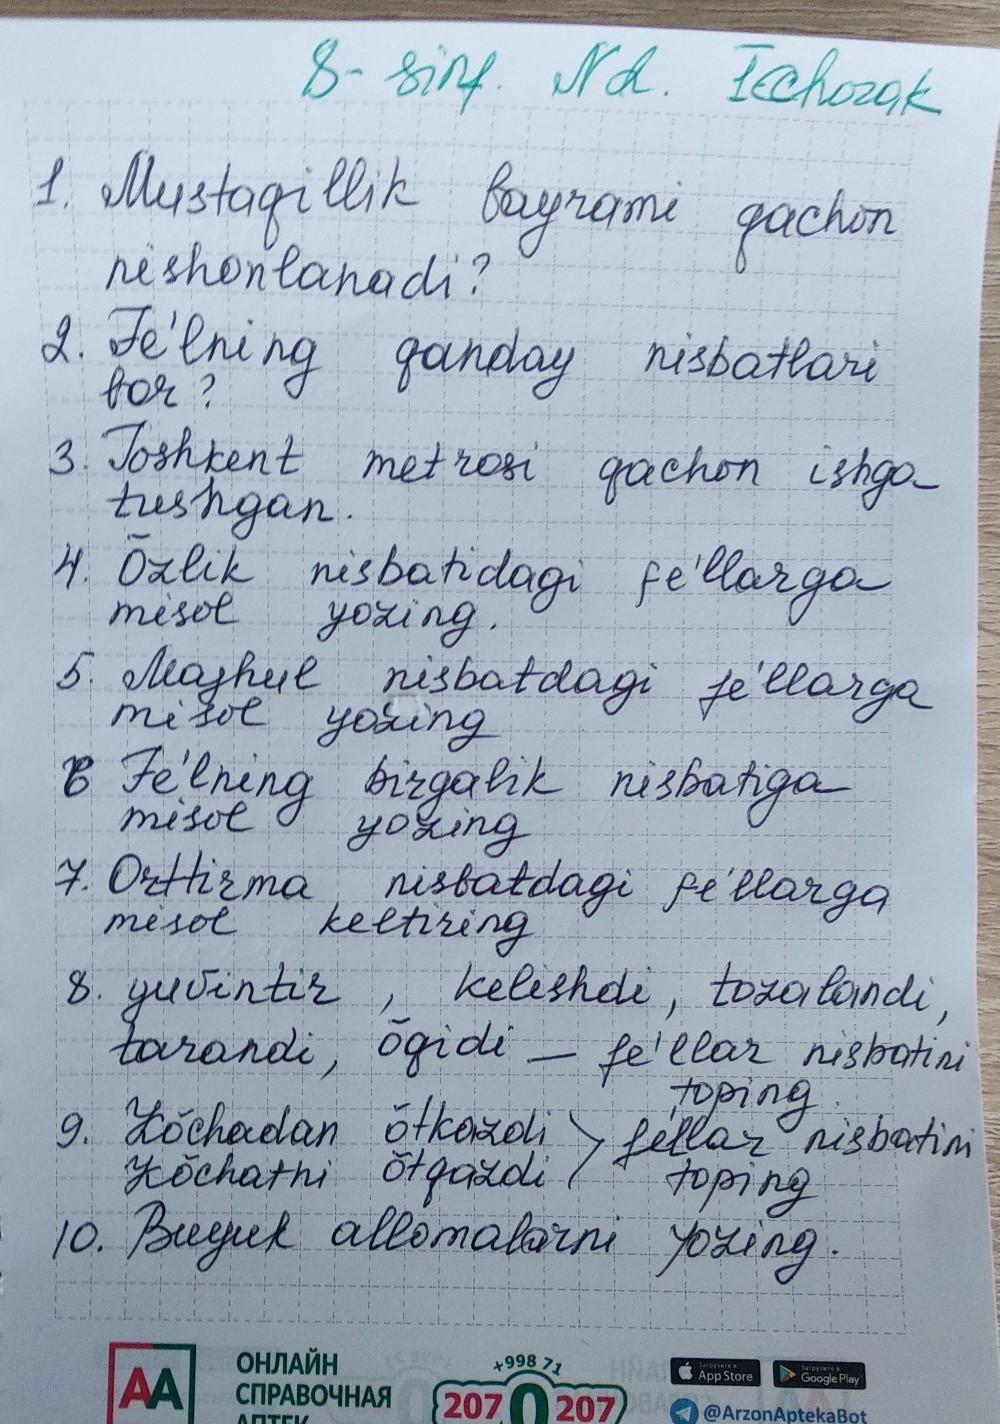 8- sinf. Nd. I chorak
1. Mustaqillik bayrami qachon
nishonlanadi?
2. Fe'lning qanday nisbatlari
bor?
3. Toshkent metrosi qachon ishga
tushgan.
4. Õzlik nisbatidagi fe'llarga
misol yozing.
5. Majhul nisbatdagi fe'llarga
misol yozing
6 Fe'lning birgalik nisbatiga
misol yozing
7. Orttirma nisbatdagi fe'llarga
misol keltiring
8. yuvintir, kelishdi, tozalandi,
tarandi, õqidi — fe'llar nisbatini
toping.
9. Kõchadan õtkazdi > fe'llar nisbatini
Kõchatni õtqazdi toping
10. Buyuk allomalarni yozing.
AA
ОНЛАЙН
СПРАВОЧНАЯ
АПТЕК
+998 71
207 0 207
Загрузите в
App Store
Загрузите в
Google Play
@ArzonAptekaBot